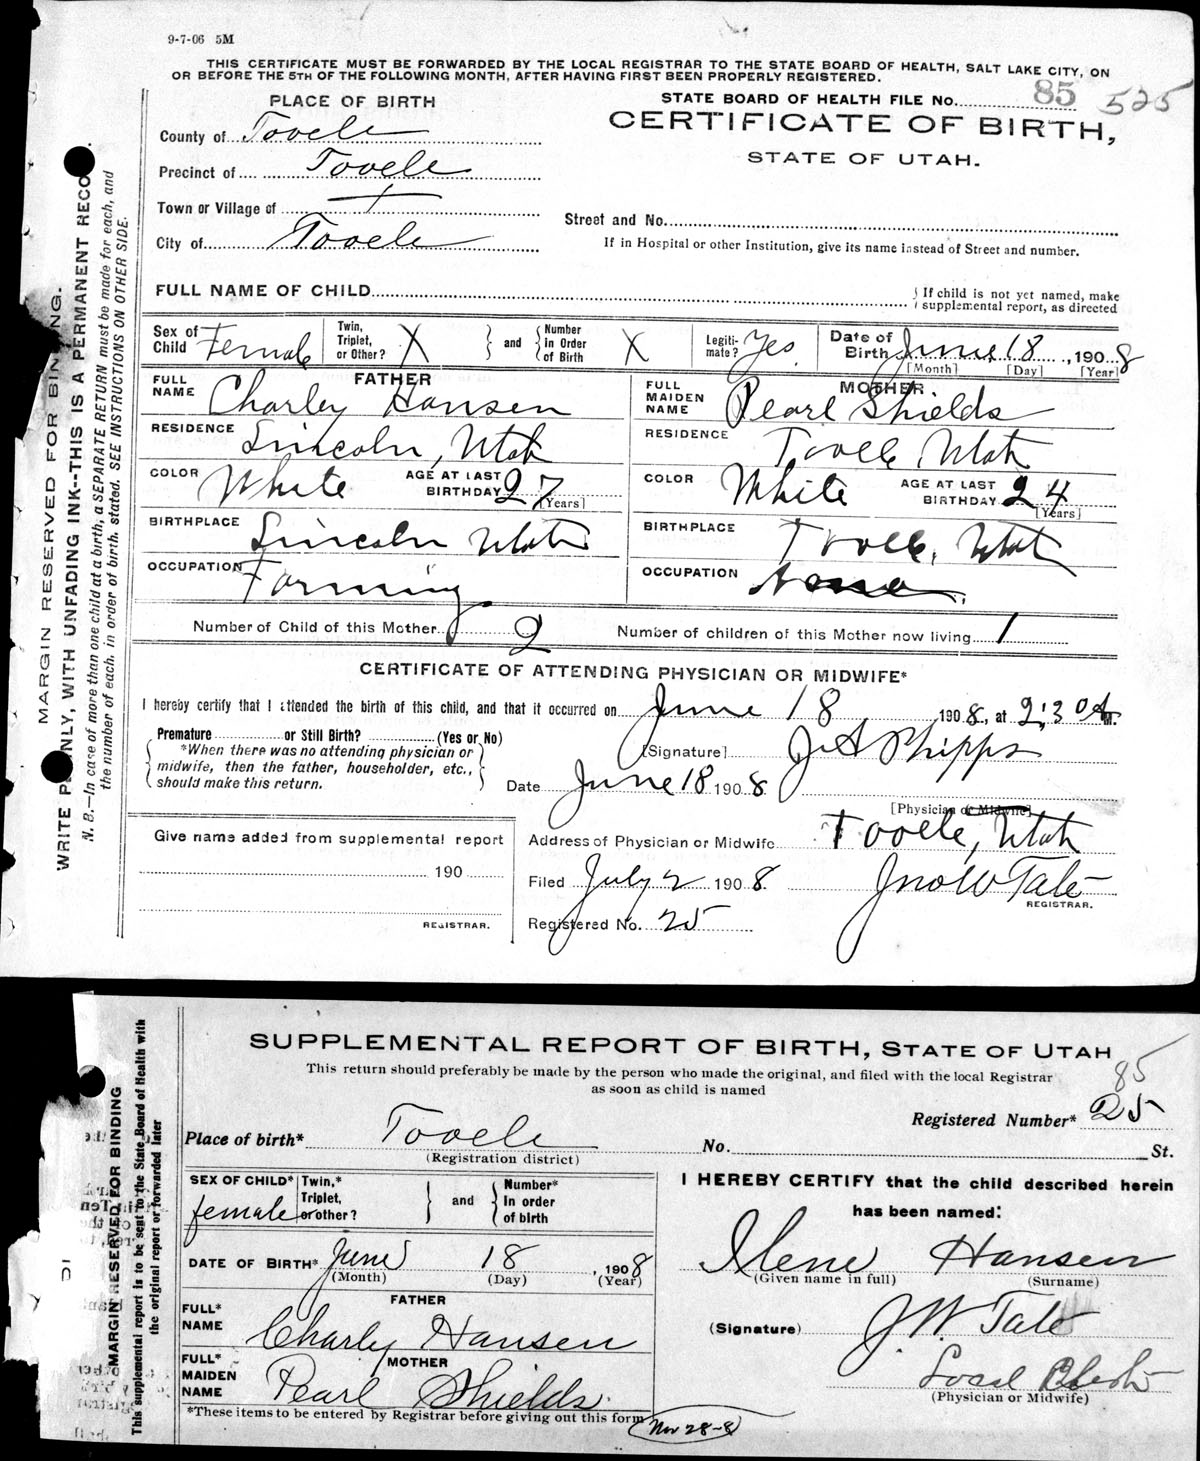 9-7-06 5M
THIS CERTIFICATE MUST BE FORWARDED BY THE LOCAL REGISTRAR TO THE STATE BOARD OF HEALTH, SALT LAKE CITY, ON
OR BEFORE THE 5TH OF THE FOLLOWING MONTH, AFTER HAVING FIRST BEEN PROPERLY REGISTERED.
STATE BOARD OF HEALTH FILE No. 85 525
CERTIFICATE OF BIRTH,
STATE OF UTAH.
PLACE OF BIRTH
County of Tooele
Precinct of Tooele
Town or Village of
City of Tooele
Street and No.
If in Hospital or other Institution, give its name instead of Street and number.
FULL NAME OF CHILD
If child is not yet named, make
supplemental report, as directed
Sex of Child Female
Twin, Triplet, or Other? X
and Number in Order of Birth X
Legiti-mate? Yes
Date of Birth June 18, 1908
[Month] [Day] [Year]
FATHER
FULL NAME Charley Hansen
RESIDENCE Lincoln, Utah
COLOR White AGE AT LAST BIRTHDAY 27 [Years]
BIRTHPLACE Lincoln Utah
OCCUPATION Farming
MOTHER
FULL MAIDEN NAME Pearl Shields
RESIDENCE Tooele, Utah
COLOR White AGE AT LAST BIRTHDAY 24 [Years]
BIRTHPLACE Tooele, Utah
OCCUPATION None
Number of Child of this Mother 2 Number of children of this Mother now living 1
CERTIFICATE OF ATTENDING PHYSICIAN OR MIDWIFE*
I hereby certify that I attended the birth of this child, and that it occurred on June 18 1908, at 2:30 A M.
Premature or Still Birth? (Yes or No)
*When there was no attending physician or
midwife, then the father, householder, etc.,
should make this return.
[Signature] J A Phipps
Date June 18 1908
[Physician or Midwife]
Address of Physician or Midwife Tooele, Utah
Give name added from supplemental report
190
REGISTRAR.
Filed July 2 1908 Jno W Tate
REGISTRAR.
Registered No. 25
MARGIN RESERVED FOR BINDING.
WRITE PLAINLY, WITH UNFADING INK--THIS IS A PERMANENT RECORD.
N. B.—In case of more than one child at a birth, a SEPARATE RETURN must be made for each, and
the number of each, in order of birth, stated. SEE INSTRUCTIONS ON OTHER SIDE.
SUPPLEMENTAL REPORT OF BIRTH, STATE OF UTAH
This return should preferably be made by the person who made the original, and filed with the local Registrar
as soon as child is named
85
Registered Number* 25
Place of birth* Tooele No. St.
(Registration district)
SEX OF CHILD* female
Twin,* Triplet, or other?
and Number* In order of birth
DATE OF BIRTH* June 18, 1908
(Month) (Day) (Year)
FATHER
FULL* NAME Charley Hansen
MOTHER
FULL* MAIDEN NAME Pearl Shields
*These items to be entered by Registrar before giving out this form
Nov 28-8
I HEREBY CERTIFY that the child described herein
has been named:
Ilene Hansen
(Given name in full) (Surname)
(Signature) J. W. Tate
Local
(Physician or Midwife)
MARGIN RESERVED FOR BINDING
This supplemental report is to be sent to the State Board of Health with
the original report or forwarded later